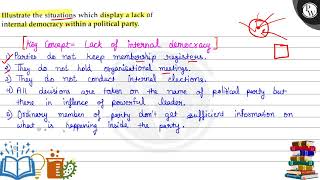 Illustrate the situations which display a lack of
internal democracy within a political party.
[Key Concept - Lack of internal democracy]
1) Parties do not keep membership registers.
2) They do not hold organisational meetings.
3) They do not conduct internal elections.
4) All decisions are taken on the name of political party but
there is inflence of powerful leader.
5) Ordinary member of party don't get sufficient information on
what is happening inside the party.